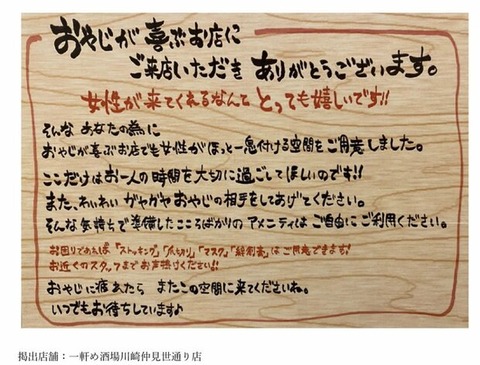 おやじが喜ぶお店に
ご来店いただき ありがとうございます。
女性が来てくれるなんて とっても嬉しいです!!
そんな あなたの為に
おやじが喜ぶお店でも女性がほっと一息付ける空間をご用意しました。
ここだけはお一人の時間を大切に過ごしてほしいのです!!
また、わいわい ガヤガヤ おやじの相手をしてあげてください。
そんな気持ちで準備したこころばかりの アメニティは ご自由にご利用ください。
お困りであれば「ストッキング」「爪切り」「マスク」「絆創膏」はご用意できます!
お近くのスタッフまでお声掛けください!!
おやじに疲れたら またこの空間に来てくださいね。
いつでもお待ちしています♪
掲出店舗:一軒め酒場川崎仲見世通り店